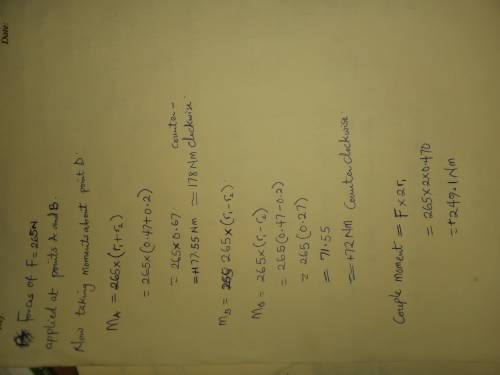 Date:
Forces of F = 265N
applied at points A and B.
Now taking moments about point D.
MA = 265 x (r1 + r2)
= 265 x (0.47 + 0.2)
= 265 x 0.67 counter-
= +177.55 Nm ≃ 178 Nm clockwise.
MB = 265 x (r1 - r2)
MB = 265 x (r1 - r2)
= 265 (0.47 - 0.2)
= 265 (0.27)
= 71.55
= +72 Nm Counter clockwise.
Couple moment = F x 2r1
= 265 x 2 x 0.470
= +249.1 Nm